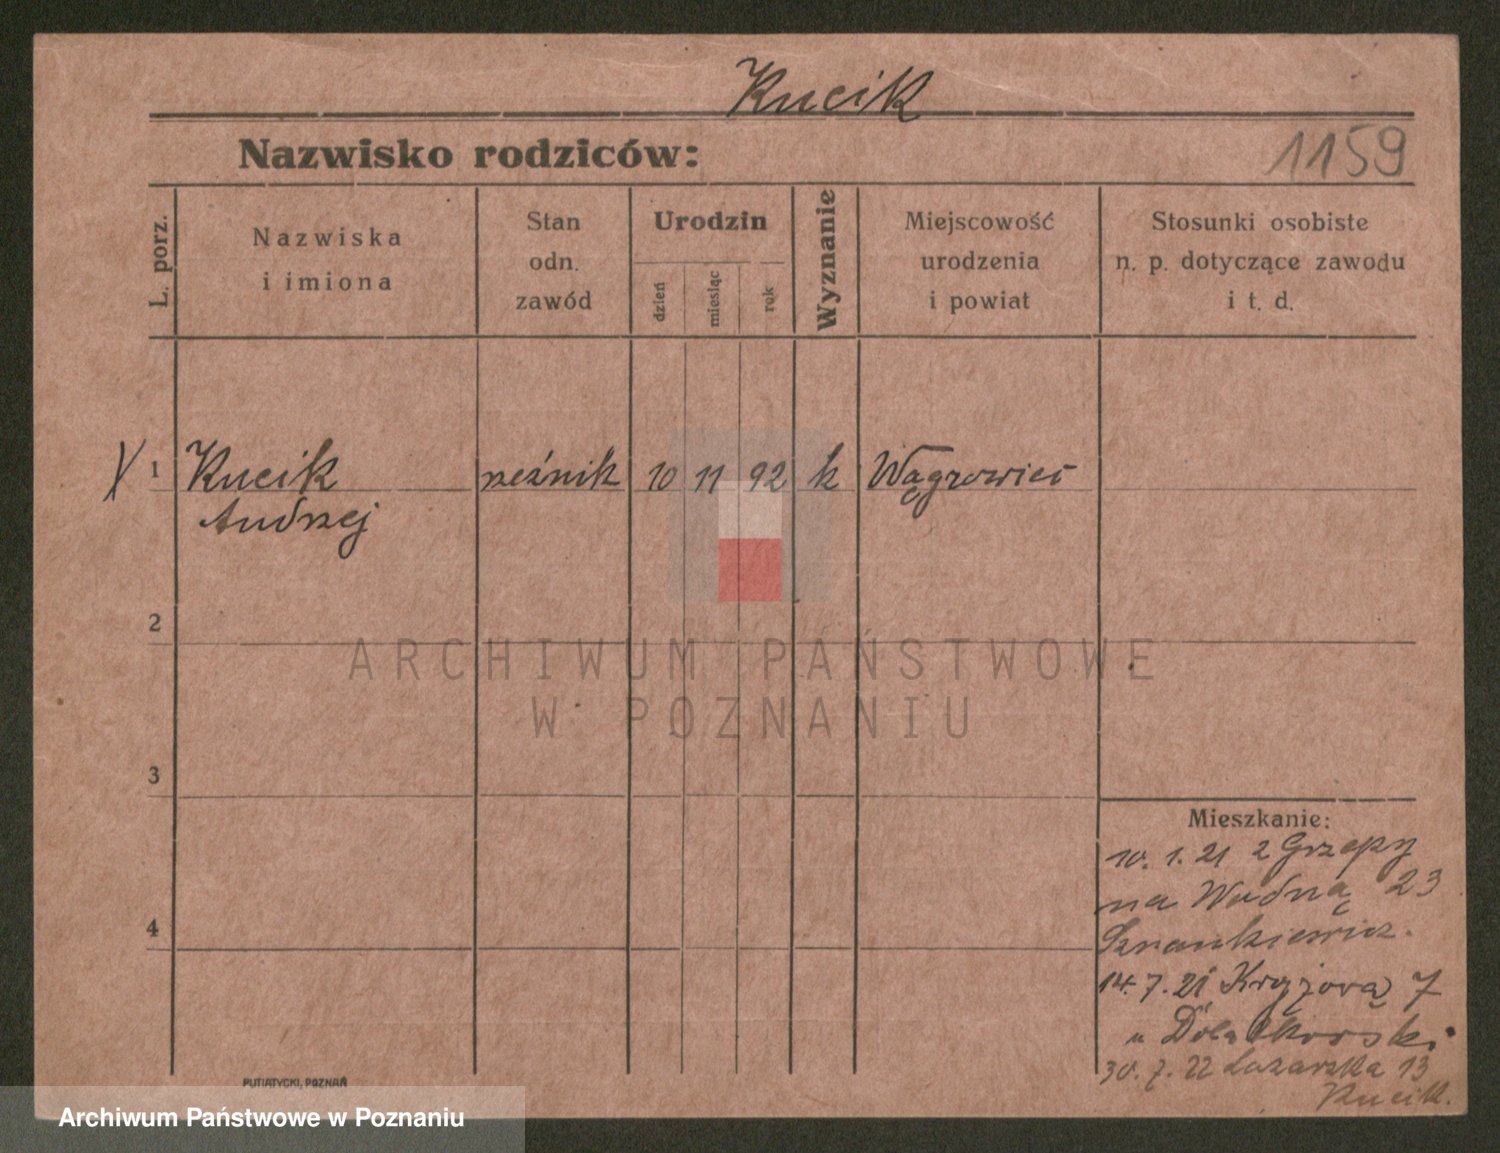 Kucik
Nazwisko rodziców:
1159
L. porz.
Nazwiska
i imiona
Stan
odn.
zawód
Urodzin
dzień
miesiąc
rok
Wyznanie
Miejscowość
urodzenia
i powiat
Stosunki osobiste
n. p. dotyczące zawodu
i t. d.
1 Kucik rzeźnik 10 11 92 k Wągrowiec
Andrzej
2
ARCHIWUM PAŃSTWOWE
W POZNANIU
3
Mieszkanie:
10. 1. 21 z
na Wodną 23
4
14. 7. 21 7
u
30. 7. 22 Łazarska 13
Kucik.
PUTIATYCKI, POZNAŃ
Archiwum Państwowe w Poznaniu